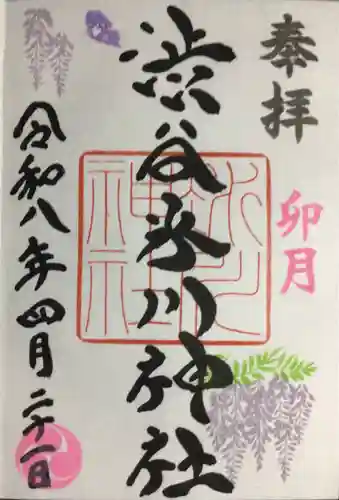 奉拝
卯月
渋谷氷川神社
令和八年四月二十一日
氷川神社